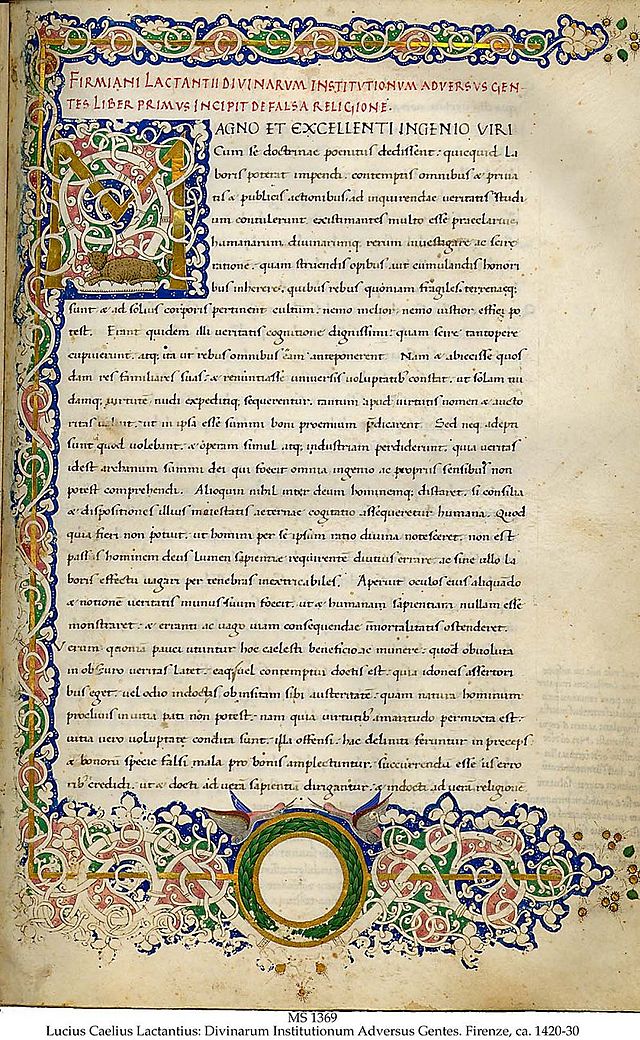 FIRMIANI LACTANTII DIVINARVM INSTITVTIONVM ADVERSVS GEN-
TES LIBER PRIMVS INCIPIT DE FALSA RELIGIONE.
MAGNO ET EXCELLENTI INGENIO VIRI
Cum se doctrinae poenitus dedissent: quicquid La
boris poterat impendi: contemptis omnibus & priua
tis & publicis actionibus, ad inquirendae veritatis studi
um contulerunt, existimantes multo esse praeclarius,
humanarum diuinarumq, rerum inuestigare ac scire
rationē, quam struendis opibus, aut cumulandis honori
bus inherere, quibus rebus quoniam fragiles, terrenaeq;
sunt & ad solius corporis pertinent cultum: nemo melior, nemo iustior effici po
test. Erant quidem illi veritatis cognitione dignissimi: quam scire tantopere
cupiuerunt, atq, ita ut rebus omnibus eam anteponerent. Nam & abiecisse quos
dam res familiares suas: & renuntiasse uniuersis uoluptatib constat, ut solam nu
damq, uirtutē nudi expeditiq, sequerentur, tantum apud uirtutis nomen & aucto
ritas ualuit, ut in ipsa esse summi boni proemium p̄dicarent. Sed neq, adepti
sunt quod uolebant: & operam simul atq; industriam perdiderunt, quia ueritas
idest archanum summi dei qui foecit omnia ingenio ac propriis sensibus non
potest comprehendi. Alioquin nihil inter deum hominemq; distaret, si consilia
& dispositiones illius maiestatis aeternae cogitatio assequeretur humana. Quod
quia fieri non potuit, ut homini per se ipsum ratio diuina notesceret, non est
passus hominem deus Lumen sapientiae requirente diutius errare, ac sine ullo la
boris effectu uagari per tenebras inextricabiles. Aperuit oculos eius aliquando
& notionē ueritatis munus suum foecit, ut & humanam sapientiam nullam esse
monstraret: & erranti ac uago uiam consequendae īmortalitatis ostenderet.
Verum quoniā pauci utuntur hoc caelesti beneficio, ac munere: quod obuoluta
in obscuro ueritas Latet: eaq, uel contemptui doctis est: quia idoneis assertori
bus eget: uel odio indoctis ob insitam sibi austeritatē: quam natura hominum
procliuis in uitia pati non potest: nam quia uirtutib amaritudo permixta est:
uitia uero uoluptate condita sunt: illa offensi: hac deliniti feruntur in preceps
& bonorū specie falsi mala pro bonis amplectuntur: succurrendū esse iis erro
rib credidi: ut & docti ad ueram sapientiā dirigantur: & indocti ad ueram religionē
MS 1369
Lucius Caelius Lactantius: Divinarum Institutionum Adversus Gentes. Firenze, ca. 1420-30